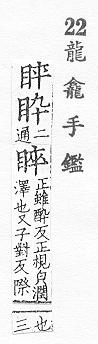 22龍龕手鑑
二通
睟
正雖醉反正視皃潤
澤也又子對反際
也
三